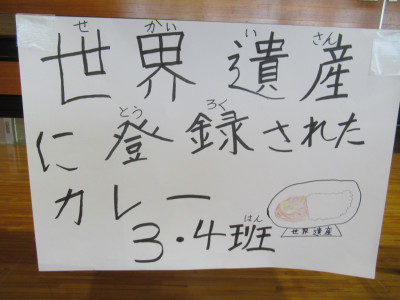 せ かい い さん
世界遺産
とう ろく
に登録された
カレー
はん
3・4班
世界遺産